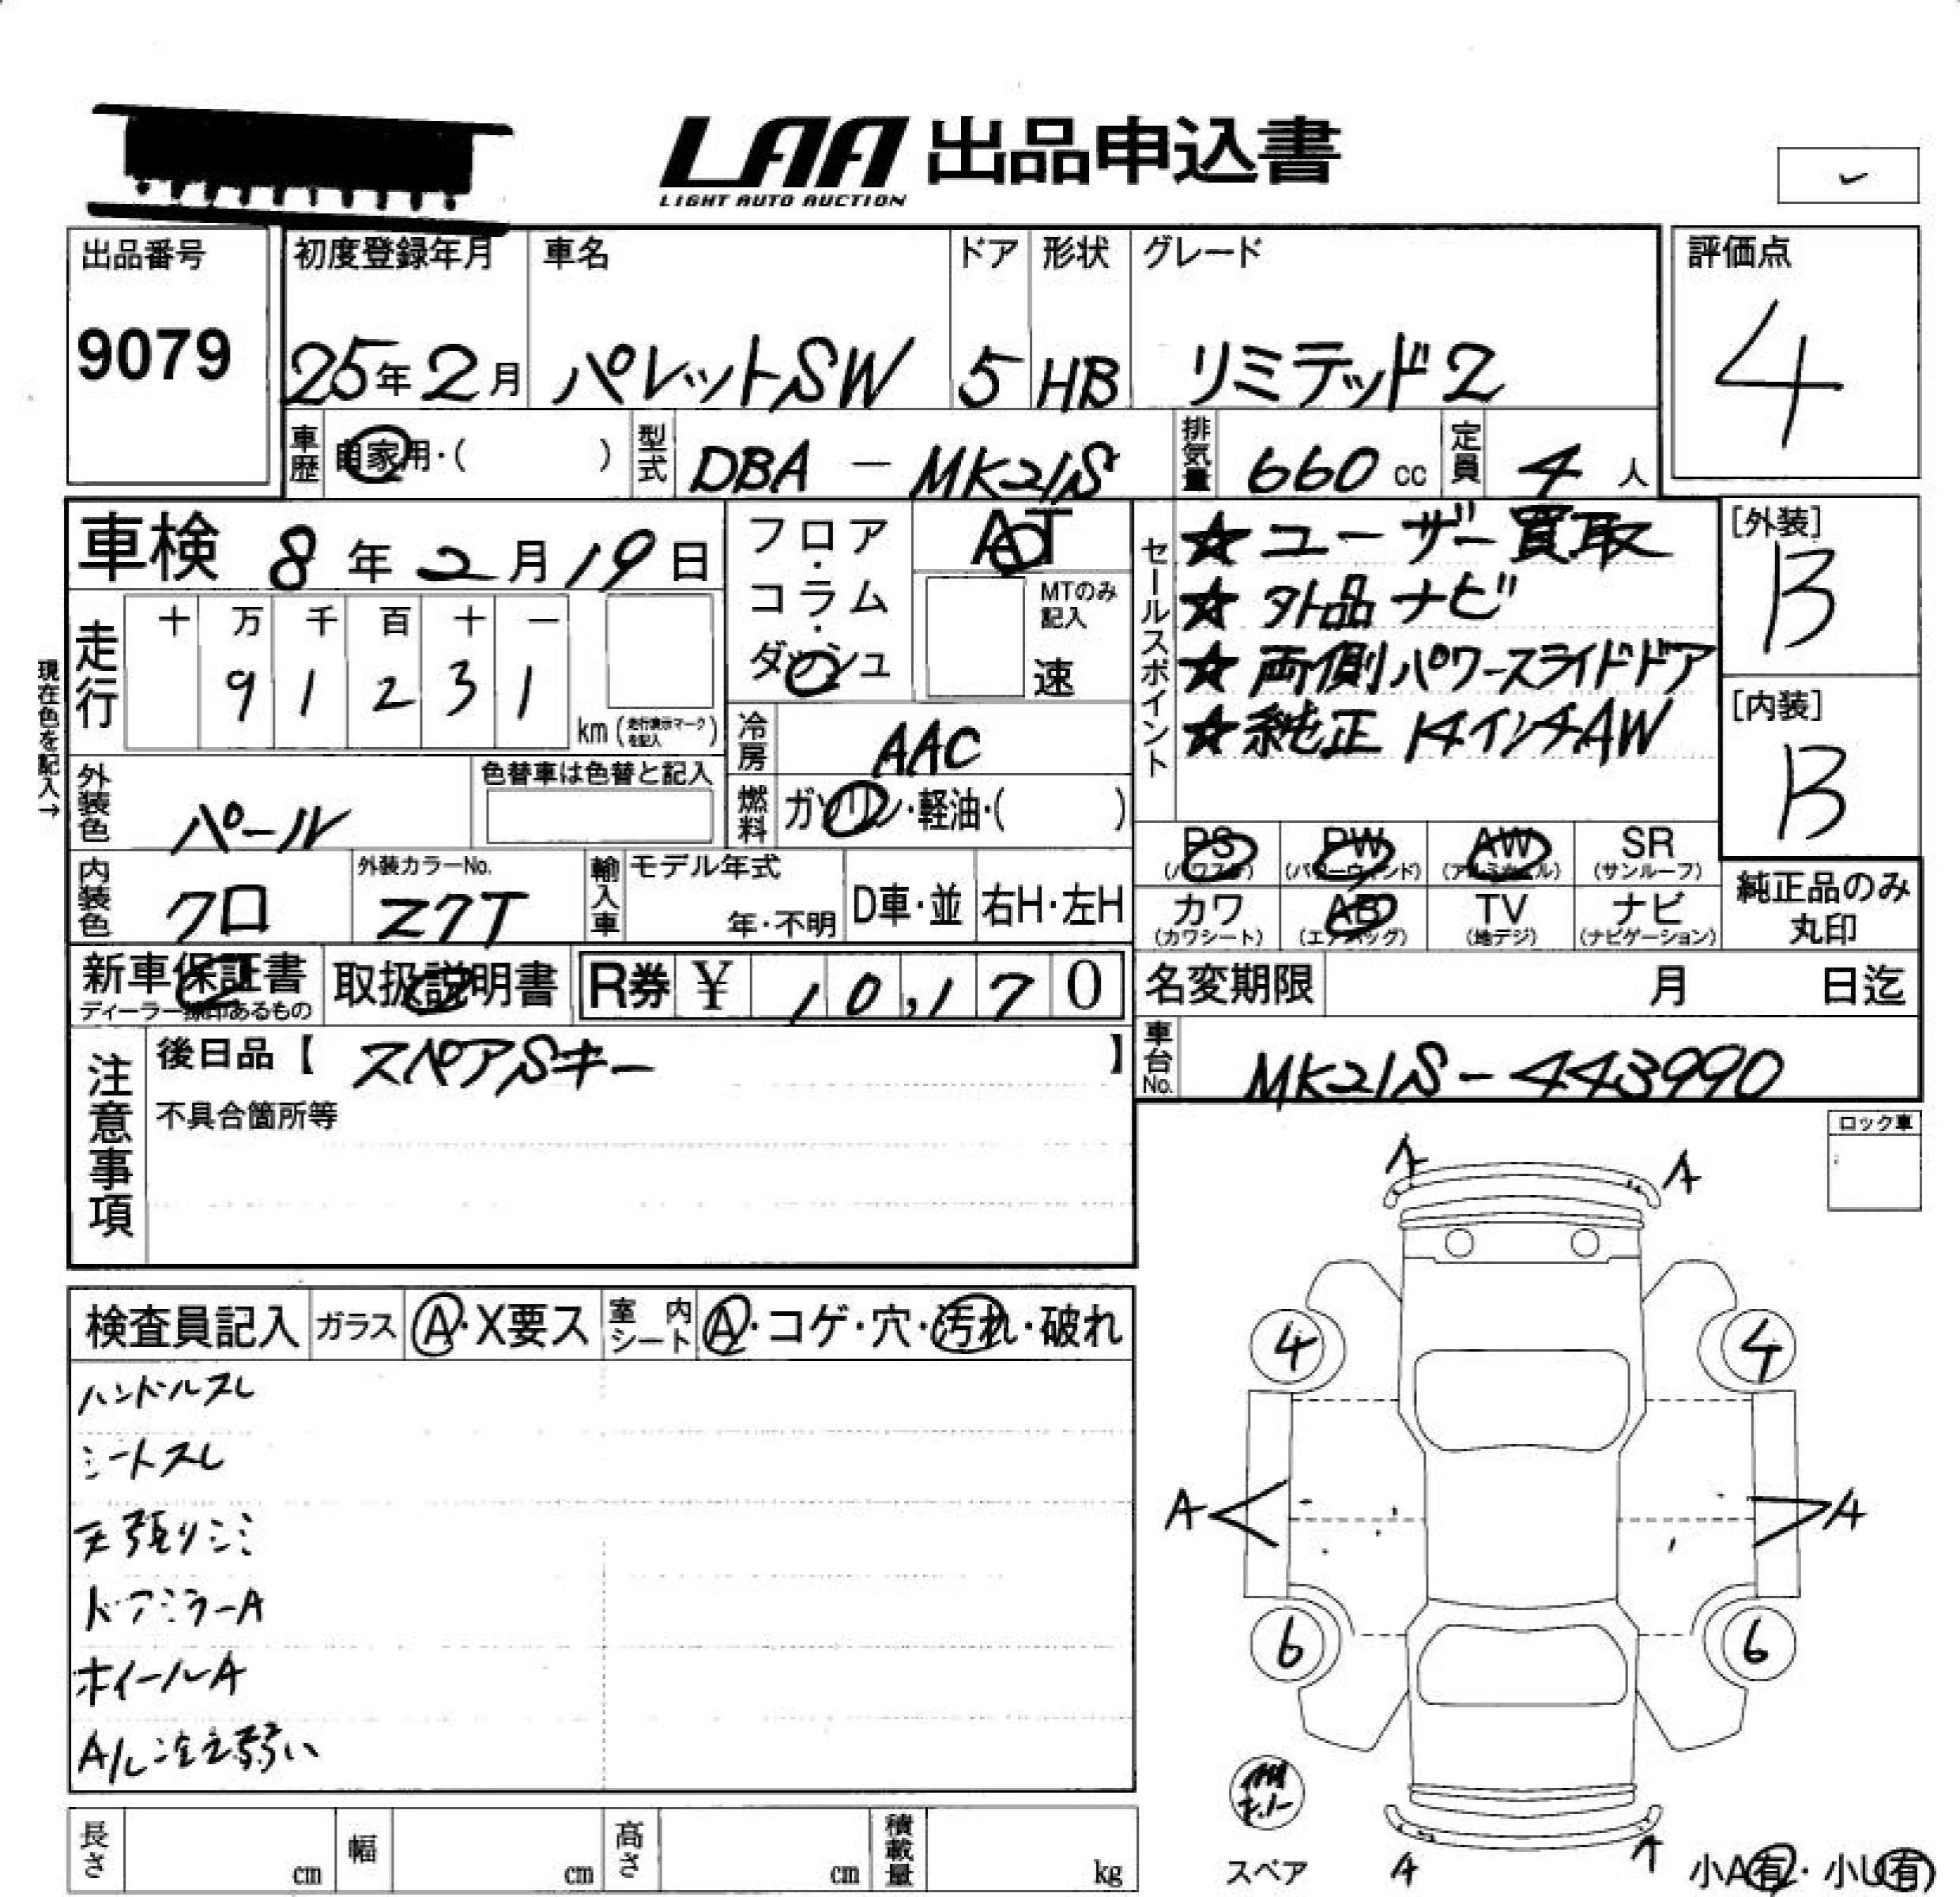 LAA 出品申込書
LIGHT AUTO AUCTION
出品番号
9079
初度登録年月
25年2月
車名
パレットSW
ドア
5
形状
HB
グレード
リミテッド2
評価点
4
車歴 自家用・( )
型式 DBA-MK21S
排気量 660 cc
定員 4 人
車検 8年2月19日
フロア・コラム・ダッシュ
AT
MTのみ記入
速
セールスポイント
☆ユーザー買取
☆外品ナビ
☆両側パワースライドドア
☆純正14インチAW
[外装]
B
[内装]
B
現在色を記入→
走行
十 万 千 百 十 一
9 1 2 3 1
km (走行表示マークを記入)
冷房 AAC
燃料 ガソリン・軽油・( )
外装色 パール
色替車は色替と記入
内装色 クロ
外装カラーNo.
Z7T
輸入車
モデル年式
年・不明
D車・並
右H・左H
PS (パワステ)
PW (パワーウィンド)
AW (アルミホイル)
SR (サンルーフ)
カワ (カワシート)
AB (エアバッグ)
TV (地デジ)
ナビ (ナビゲーション)
純正品のみ丸印
新車保証書
ディーラー捺印あるもの
取扱説明書
R券 ¥ 10,170
名変期限 月 日迄
車台No. MK21S-443990
注意事項
後日品【 スペアSキー 】
不具合箇所等
ロック車
検査員記入
ガラス A・X要ス
室内シート A・コゲ・穴・汚れ・破れ
ハンドルスレ
シートスレ
天張りシミ
ドアミラーA
ホイールA
A/C冷え弱い
A A
4 4
A A
6 6
A A
スペア
小A有・小U有
長さ cm
幅 cm
高さ cm
積載量 kg